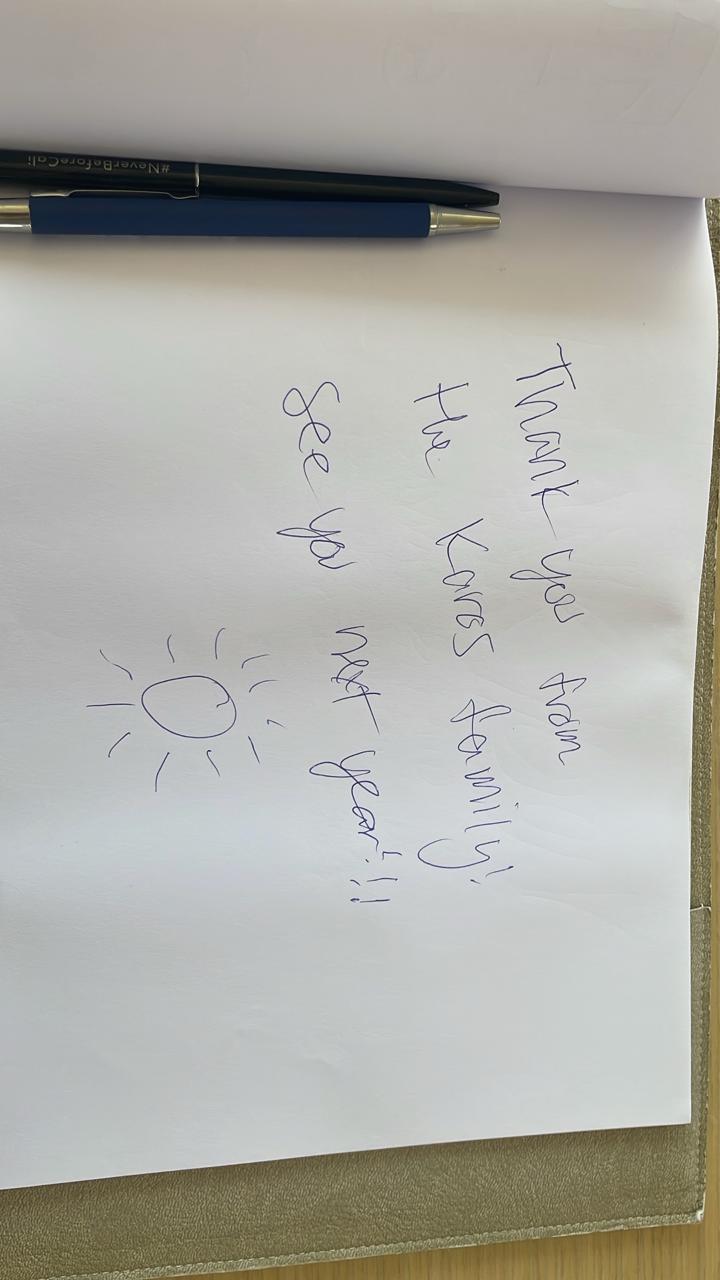 #NeverBeforeCali
Thank you from
the Karas family!
See you next year!!!